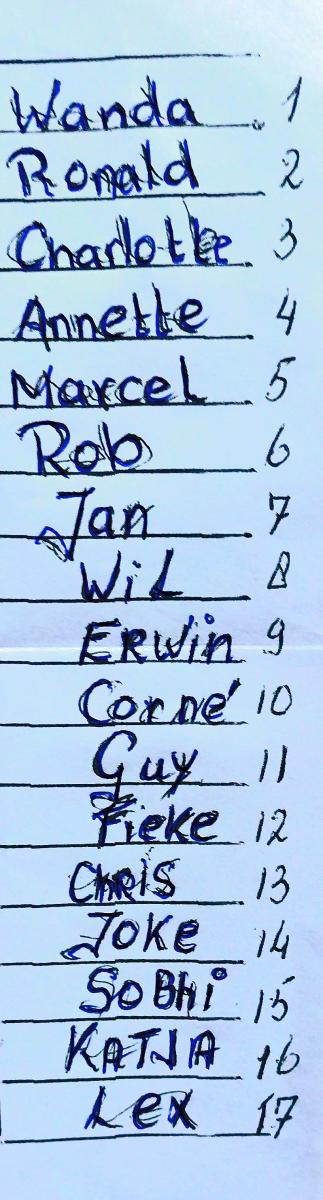 Wanda 1
Ronald 2
Charlotte 3
Annette 4
Marcel 5
Rob 6
Jan 7
Wil 8
Erwin 9
Corné 10
Guy 11
Fieke 12
CHRIS 13
JOKE 14
SoBHi 15
KATJA 16
Lex 17